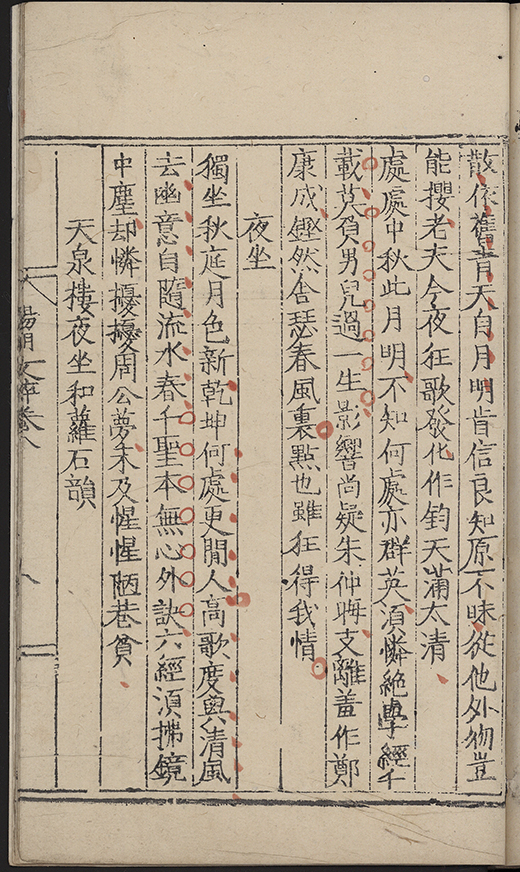 散依舊青天自月明肯信良知原不昧從他外物豈
能攖老夫今夜狂歌發化作鈞天滿太清
處處中秋此月明不知何處亦群英湏憐絶學經千
載莫負男兒過一生影響尚疑朱仲晦支離羞作鄭
康成鏗然舍瑟春風裏點也雖狂得我情
夜坐
獨坐秋庭月色新乾坤何處更閒人高歌度與清風
去幽意自隨流水春千聖本無心外訣六經湏拂鏡
中塵却憐擾擾周公夢未及惺惺陋巷貧
天泉樓夜坐和蘿石韻
陽明文粹卷八
八